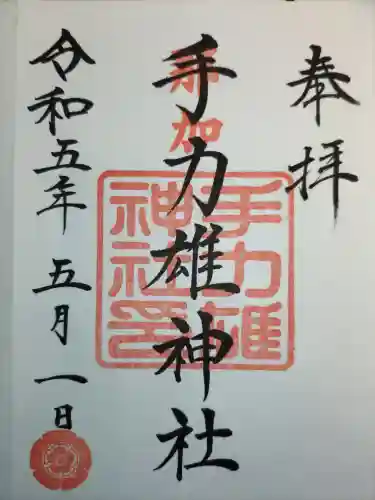 奉拝
那加
手力雄神社
手力雄
神社印
令和五年 五月一日